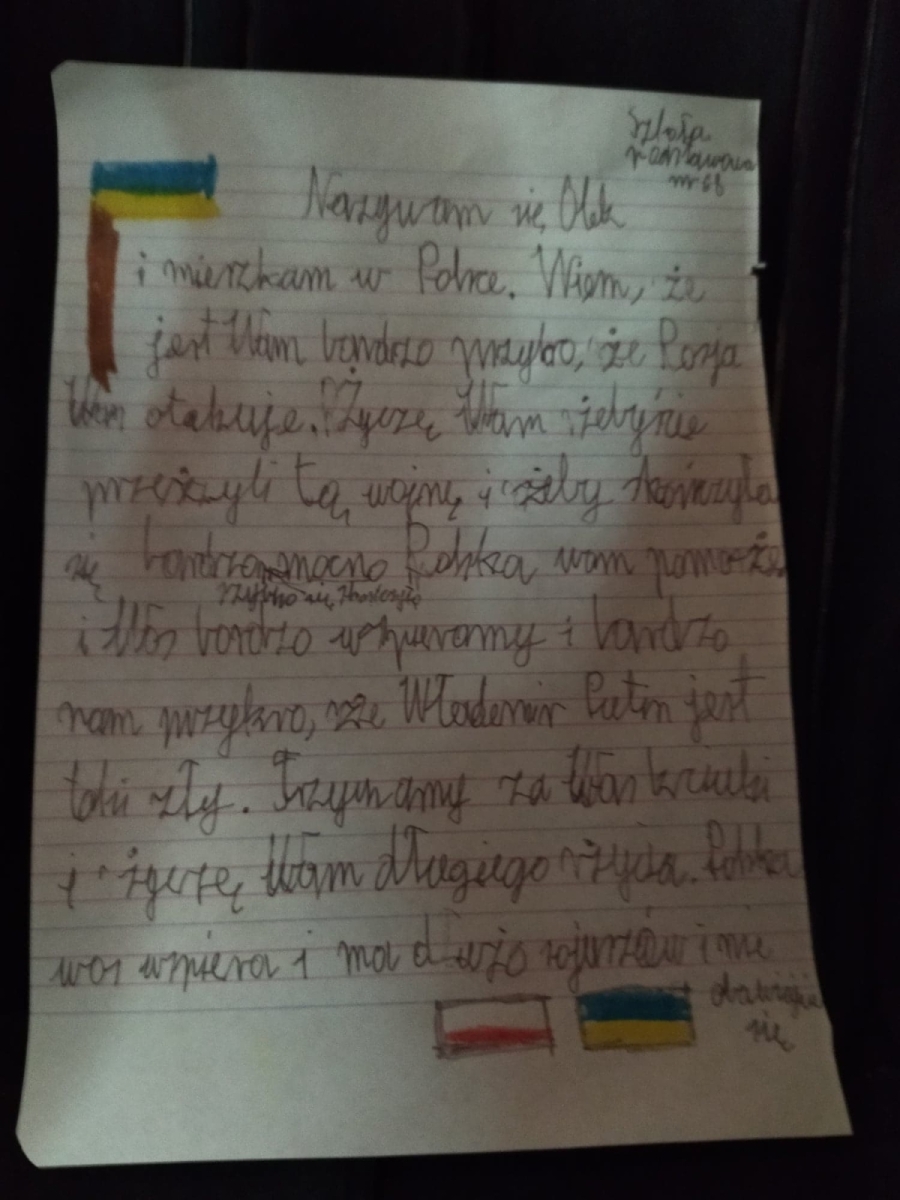 Szkoła
Podstawowa
nr 68
Nazywam się Olek
i mieszkam w Polsce. Wiem, że
jest Wam bardzo przykro, że Rosja
Wam atakuje. Życzę Wam żebyście
przeżyli tą wojnę i żeby skończyła
się bardzo mocno Polska wam pomoże
szybko się skończyła
i Was bardzo wspieramy i bardzo
nam przykro, że Władimir Putin jest
taki zły. Trzymamy za Was kciuki
i życzę Wam długiego życia. Polska
was wspiera i ma dużo sojuszów i nie
obawiajcie
się